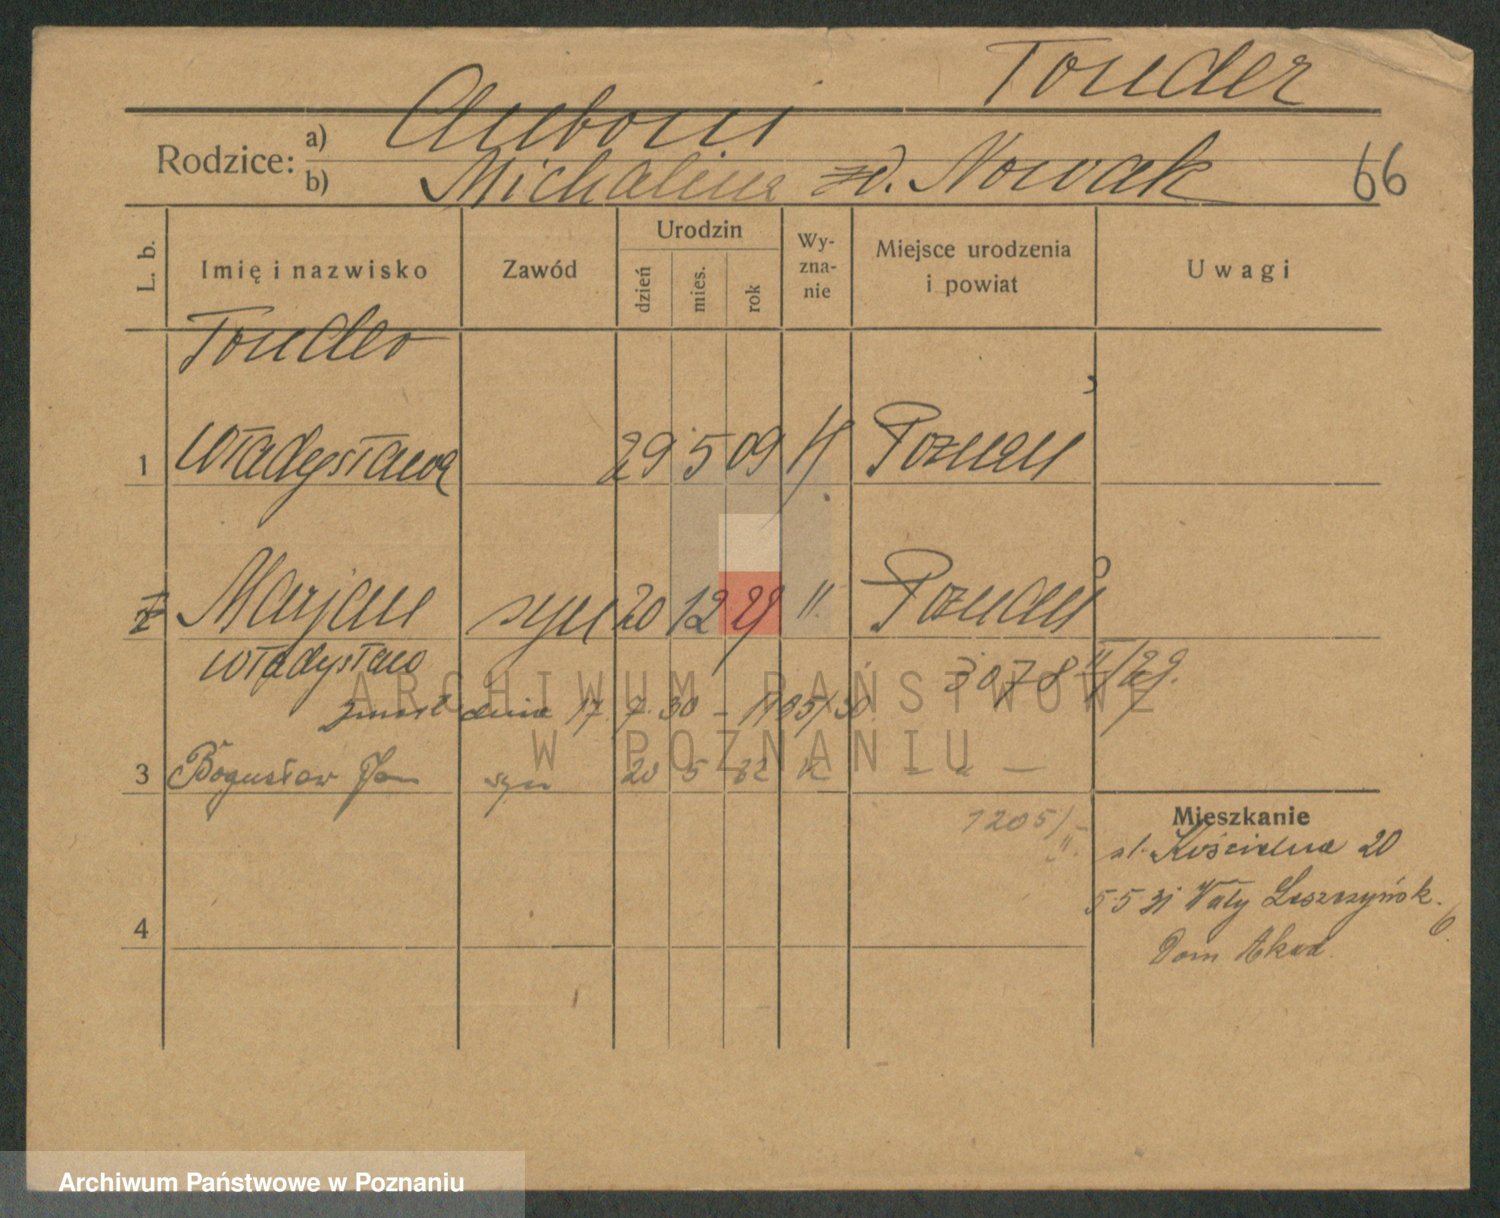 Tonder
Rodzice: a) Antoni
b) Michalina zd. Nowak
66
L. b.
Imię i nazwisko
Zawód
Urodzin
dzień
mies.
rok
Wy-
zna-
nie
Miejsce urodzenia
i powiat
Uwagi
Tonder
1 Władysława 29 5 09 Poznań
2 Marjan syn 20 12 29 Poznań
Władysław
3078 II/29.
zmarł dnia 17. 7. 30 – 1705/30.
3 Bogusław Jan syn 20 5 32 k – " –
1205/
II.
4
Mieszkanie
Kościelna 20
5 5 31 Wały Leszczyńsk. 6
Dom Akad.
ARCHIWUM PAŃSTWOWE
W POZNANIU
Archiwum Państwowe w Poznaniu